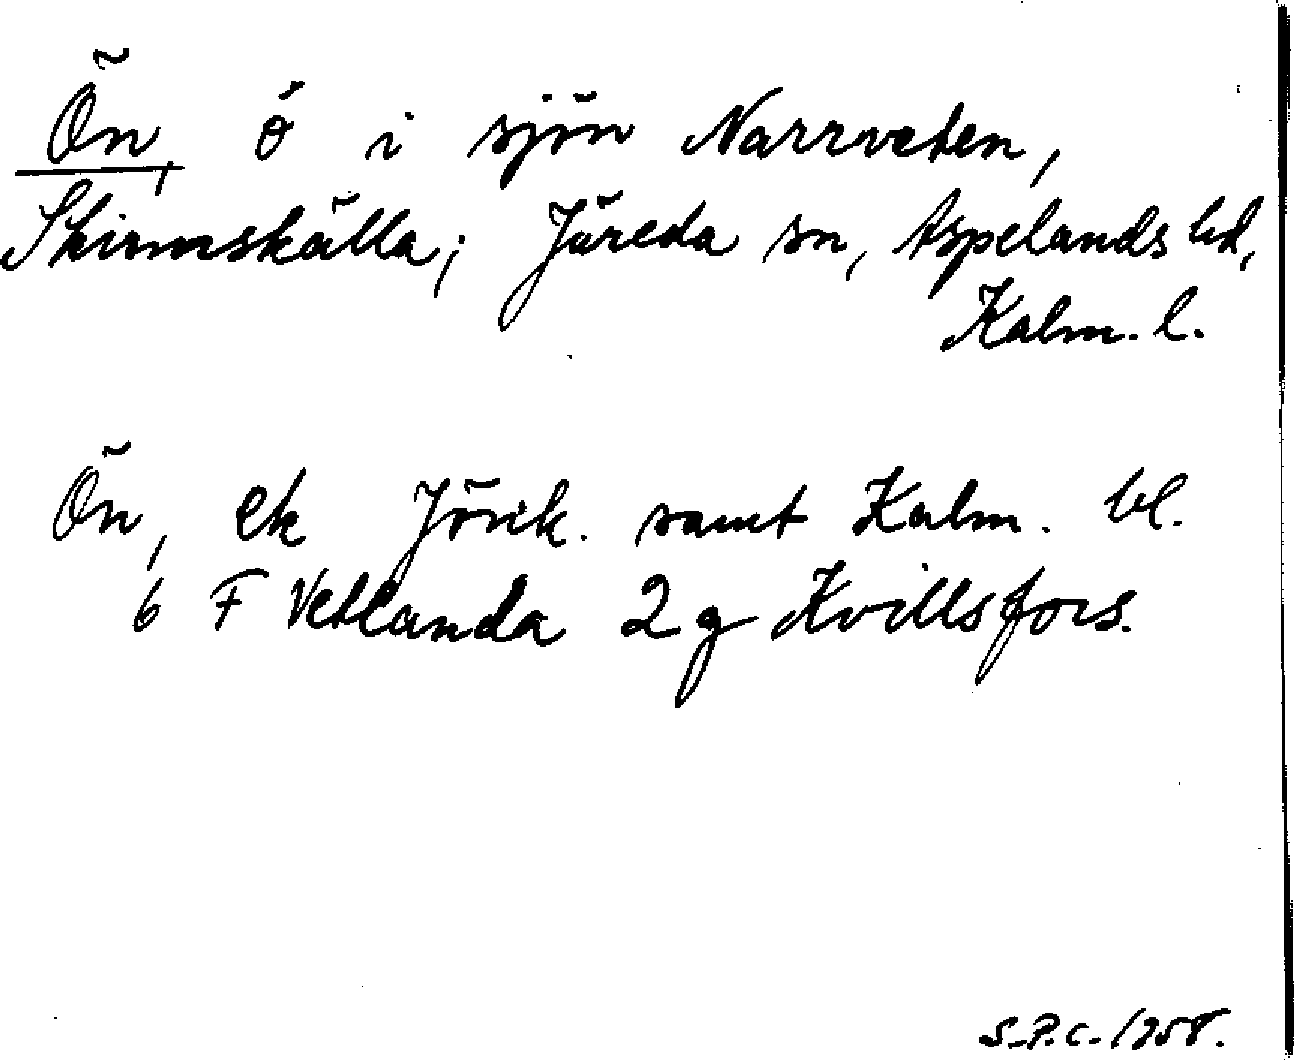 Ön, ö i sjön Narrveten,
Skirmskälla; Järeda sn, Aspelands hd,
Kalm. l.
Ön, ek Jönk. samt Kalm. bl.
6 F Vetlanda 2 g Kvillsfors.
S.P.C. 1958.